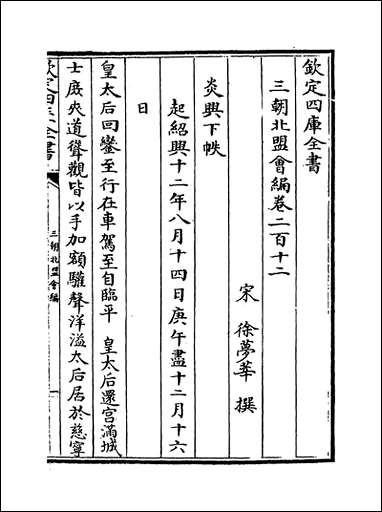 欽定四庫全書
三朝北盟會編卷二百十二
宋 徐夢莘 撰
炎興下帙
起紹興十二年八月十四日庚午盡十二月十六
日
皇太后回鑾至行在車駕至自臨平 皇太后還宫滿城
士庶夾道聳觀皆以手加額驩聲洋溢太后居於慈寧
欽定四庫全書
三朝北盟會編